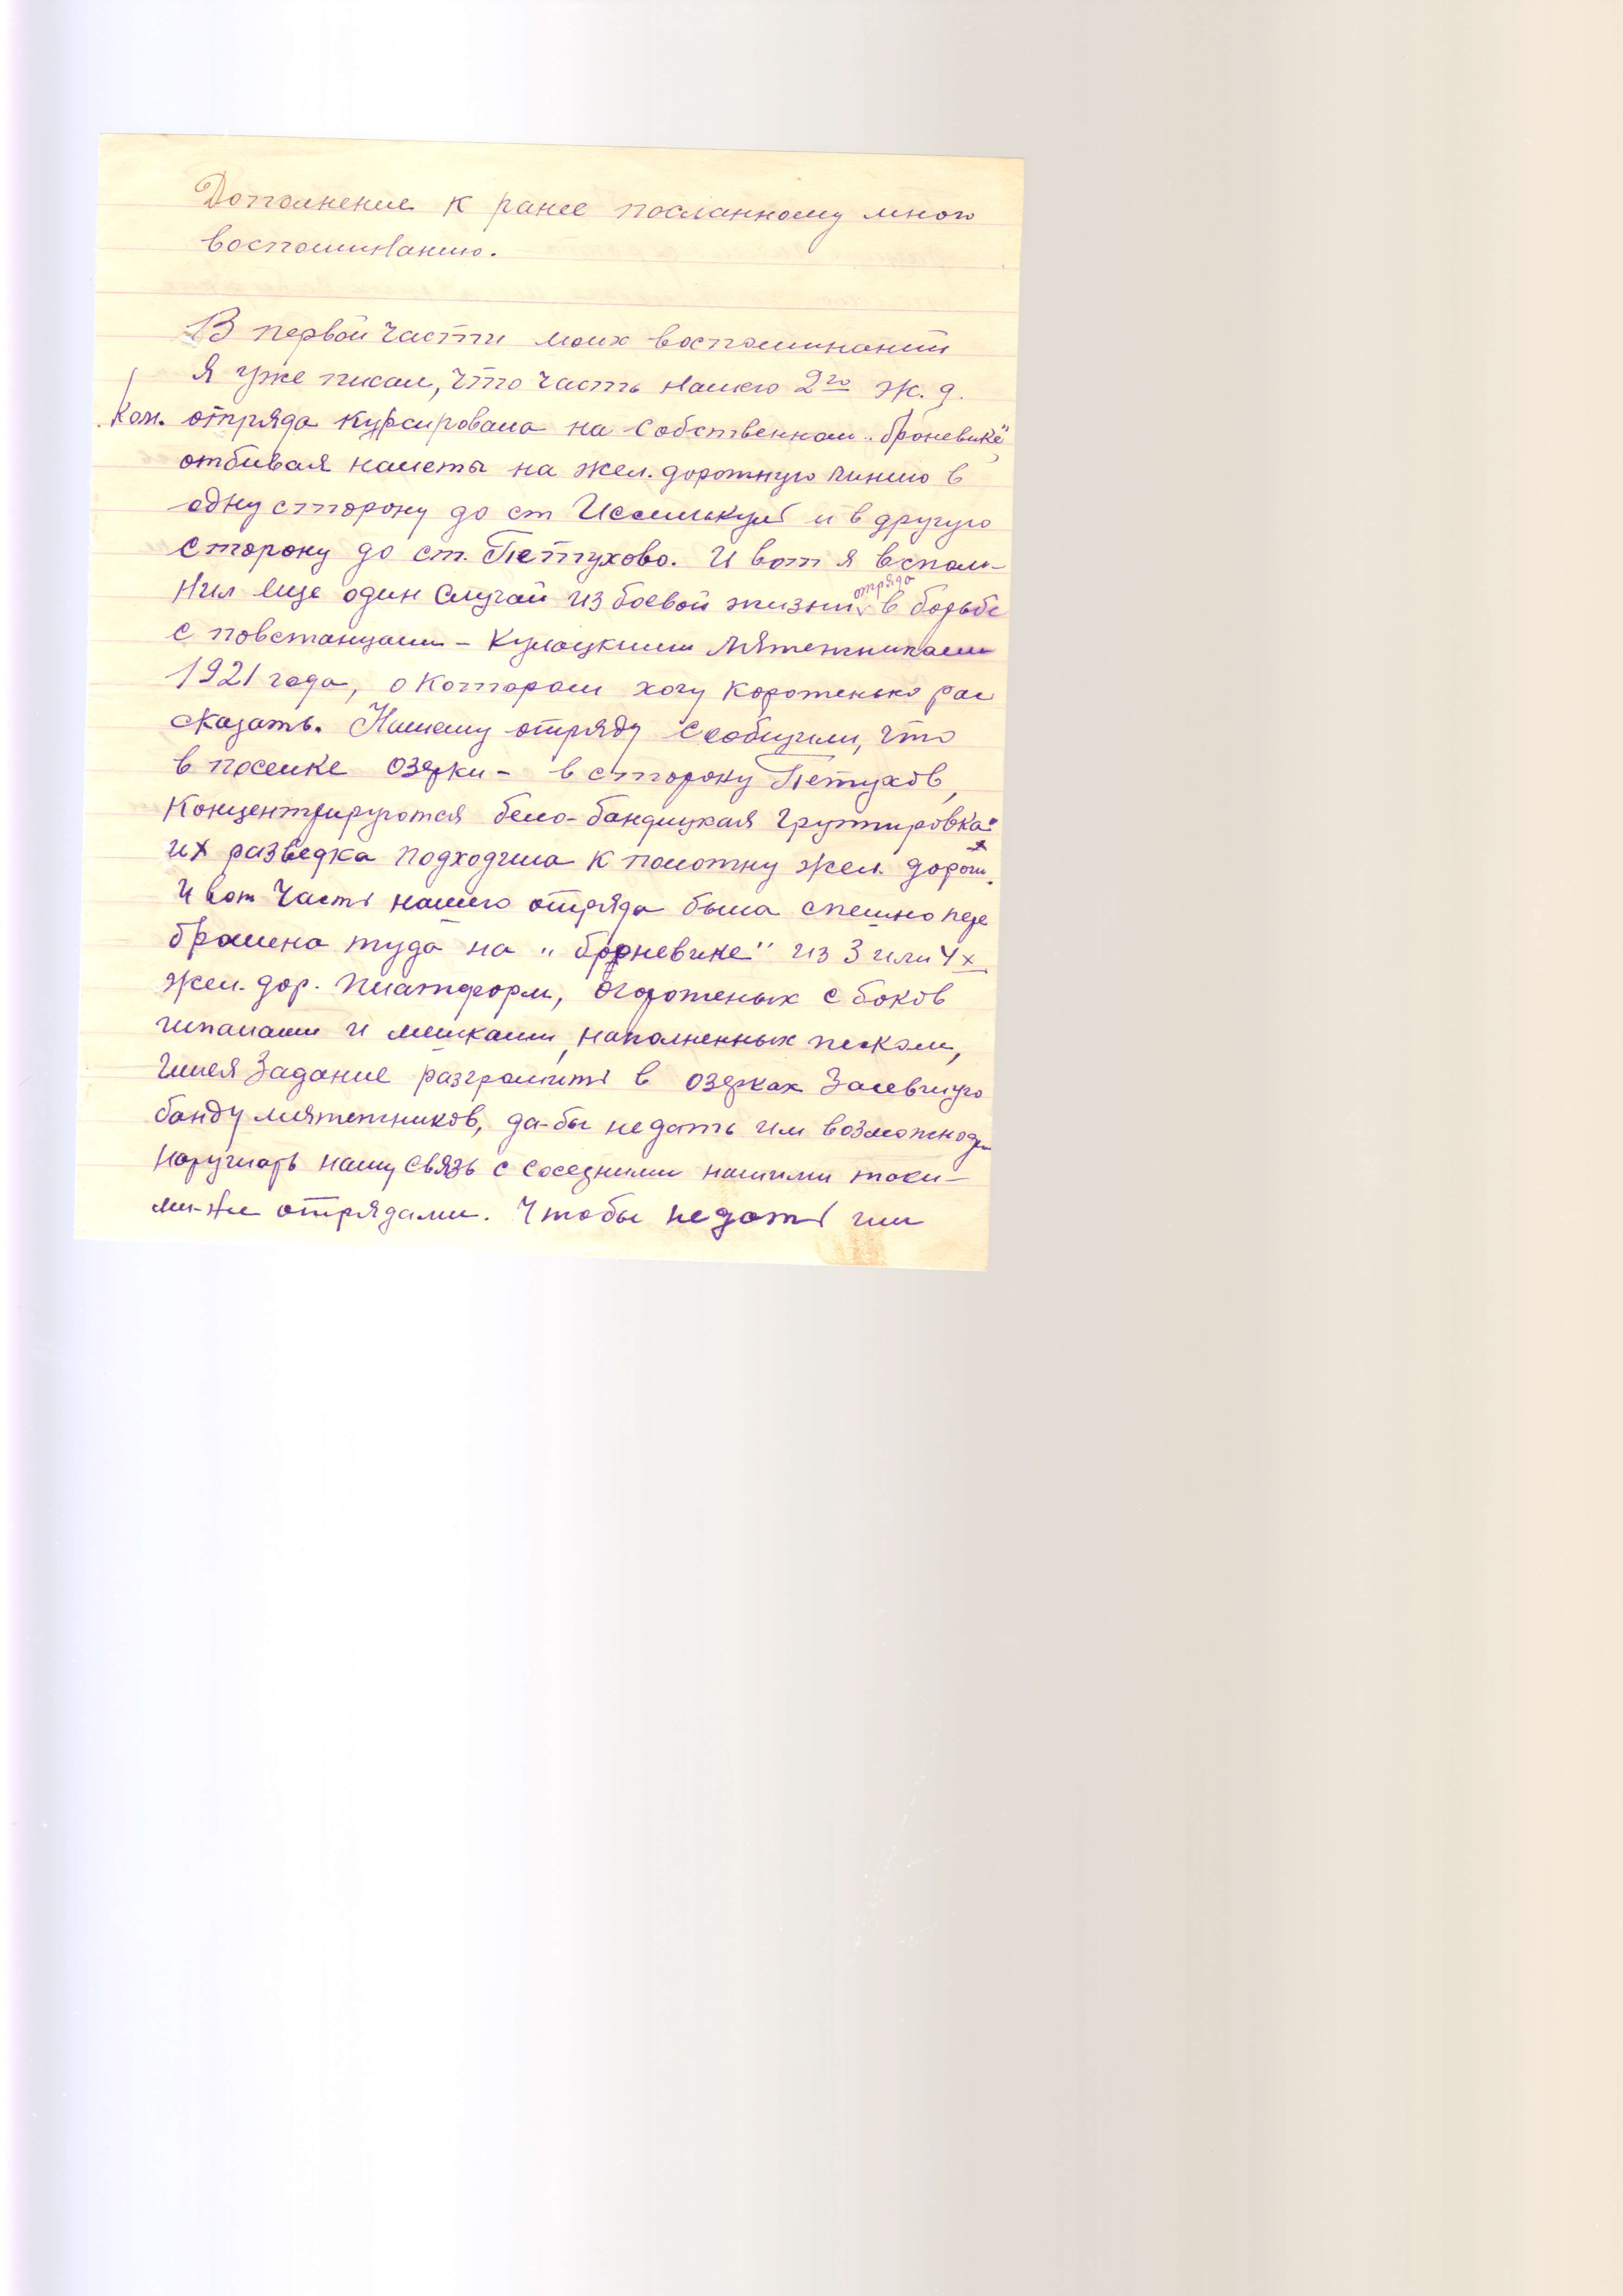 Дополнение к ранее посланному мною
воспоминанию.
В первой части моих воспоминаний
я уже писал, что часть нашего 2го ж.д.
Ком. отряда курсировала на собственном „броневике",
отбивая налеты на жел. дорожную линию в
одну сторону до ст Исилькуль и в другую
сторону до ст. Петухово. И вот я вспом-
нил еще один случай из боевой жизни отряда в борьбе
с повстанцами - кулацкими мятежниками
1921 года, о котором хочу коротенько рас
сказать. Нашему отряду сообщили, что
в поселке Озерки - в сторону Петухов,
концентрируются бело-бандицкая группировка
их разведка подходила к полотну жел. дорог.
И вот часть нашего отряда была спешно пере
брошена туда на „броневике" из 3 или 4х
жел. дор. платформ, огороженых с боков
шпалами и мешками, наполненных песком,
имея задание разгромить в озерках засевшую
банду мятежников, да-бы не дать им возможность
нарушать нашу связь с соседними нашими таки-
ми-же отрядами. Чтобы не дать им